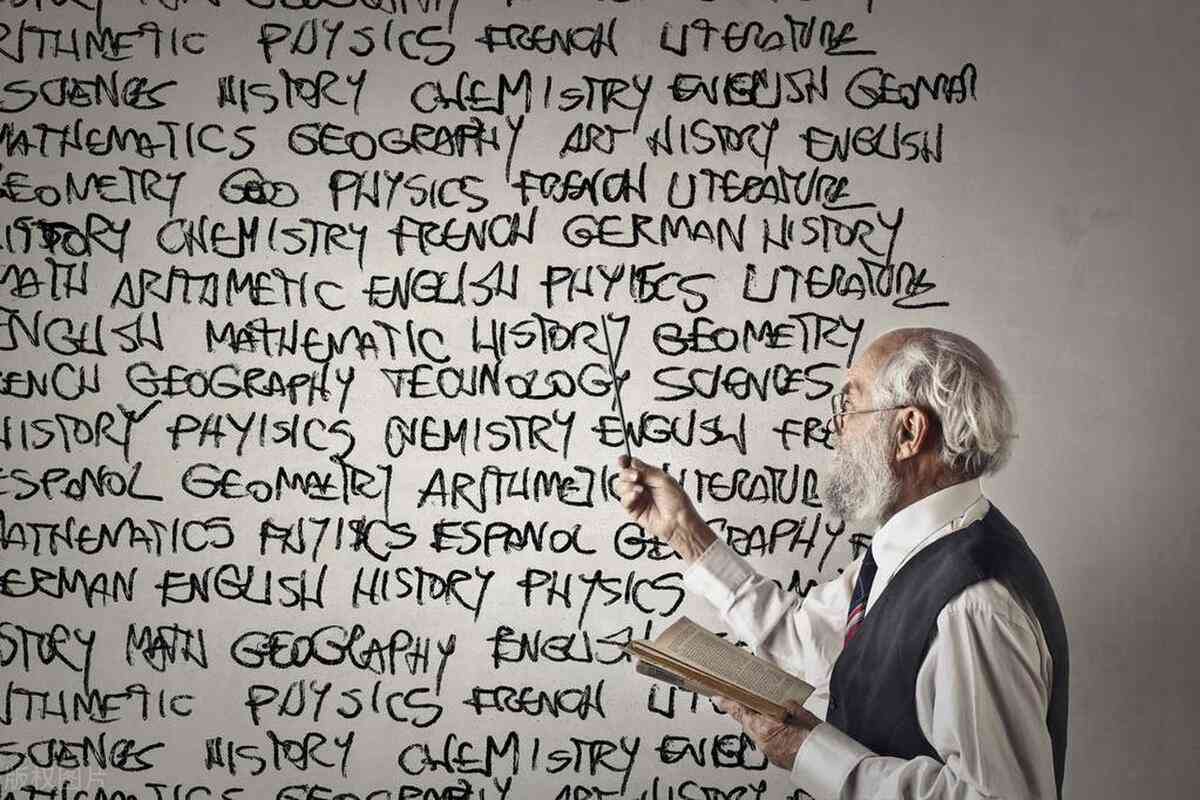 ARITHMETIC PHYSICS FRENCH LITERATURE
SCIENCES HISTORY CHEMISTRY ENGLISH
MATHEMATICS GEOGRAPHY ART HISTORY ENGLISH
GEOMETRY GEO PHYSICS FRENCH LITERATURE
HISTORY CHEMISTRY FRENCH GERMAN HISTORY
MATH ARITHMETIC ENGLISH PHYSICS LITERATURE
ENGLISH MATHEMATIC HISTORY GEOMETRY
FRENCH GEOGRAPHY TECHNOLOGY SCIENCES
HISTORY PHYISICS CHEMISTRY ENGLISH FRE
ESPANOL GEOMETRY ARITHMETIC LITERATUR
MATHEMATICS PHYSICS ESPANOL GEOGRAPHY
GERMAN ENGLISH HISTORY PHYSICS
STORY MATH GEOGRAPHY ENGLISH
ITHMETIC PHYSICS FRENCH LIT
SCIENCES HISTORY CHEMISTRY ENGL
MATHEMATICS GEOGRAPHY ART HISTORY
版权图片